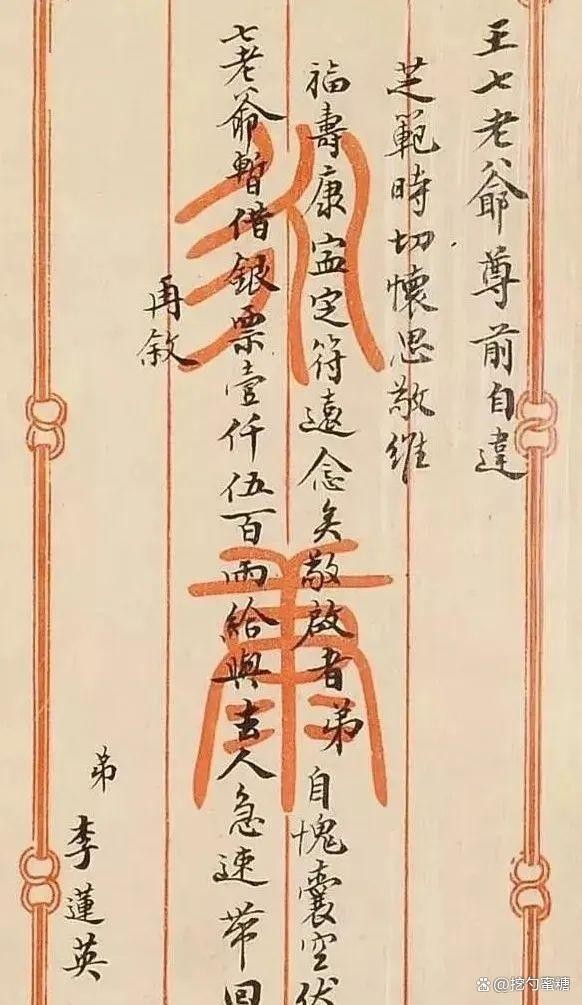 王七老爺尊前自違
芝範時切懷思敬維
福壽康寍定符遠念矣敬啟者弟自愧囊空伏
七老爺暫借銀票壹仟伍百兩給與去人急速帶回
再敘
弟 李蓮英
挖勺蜜糖